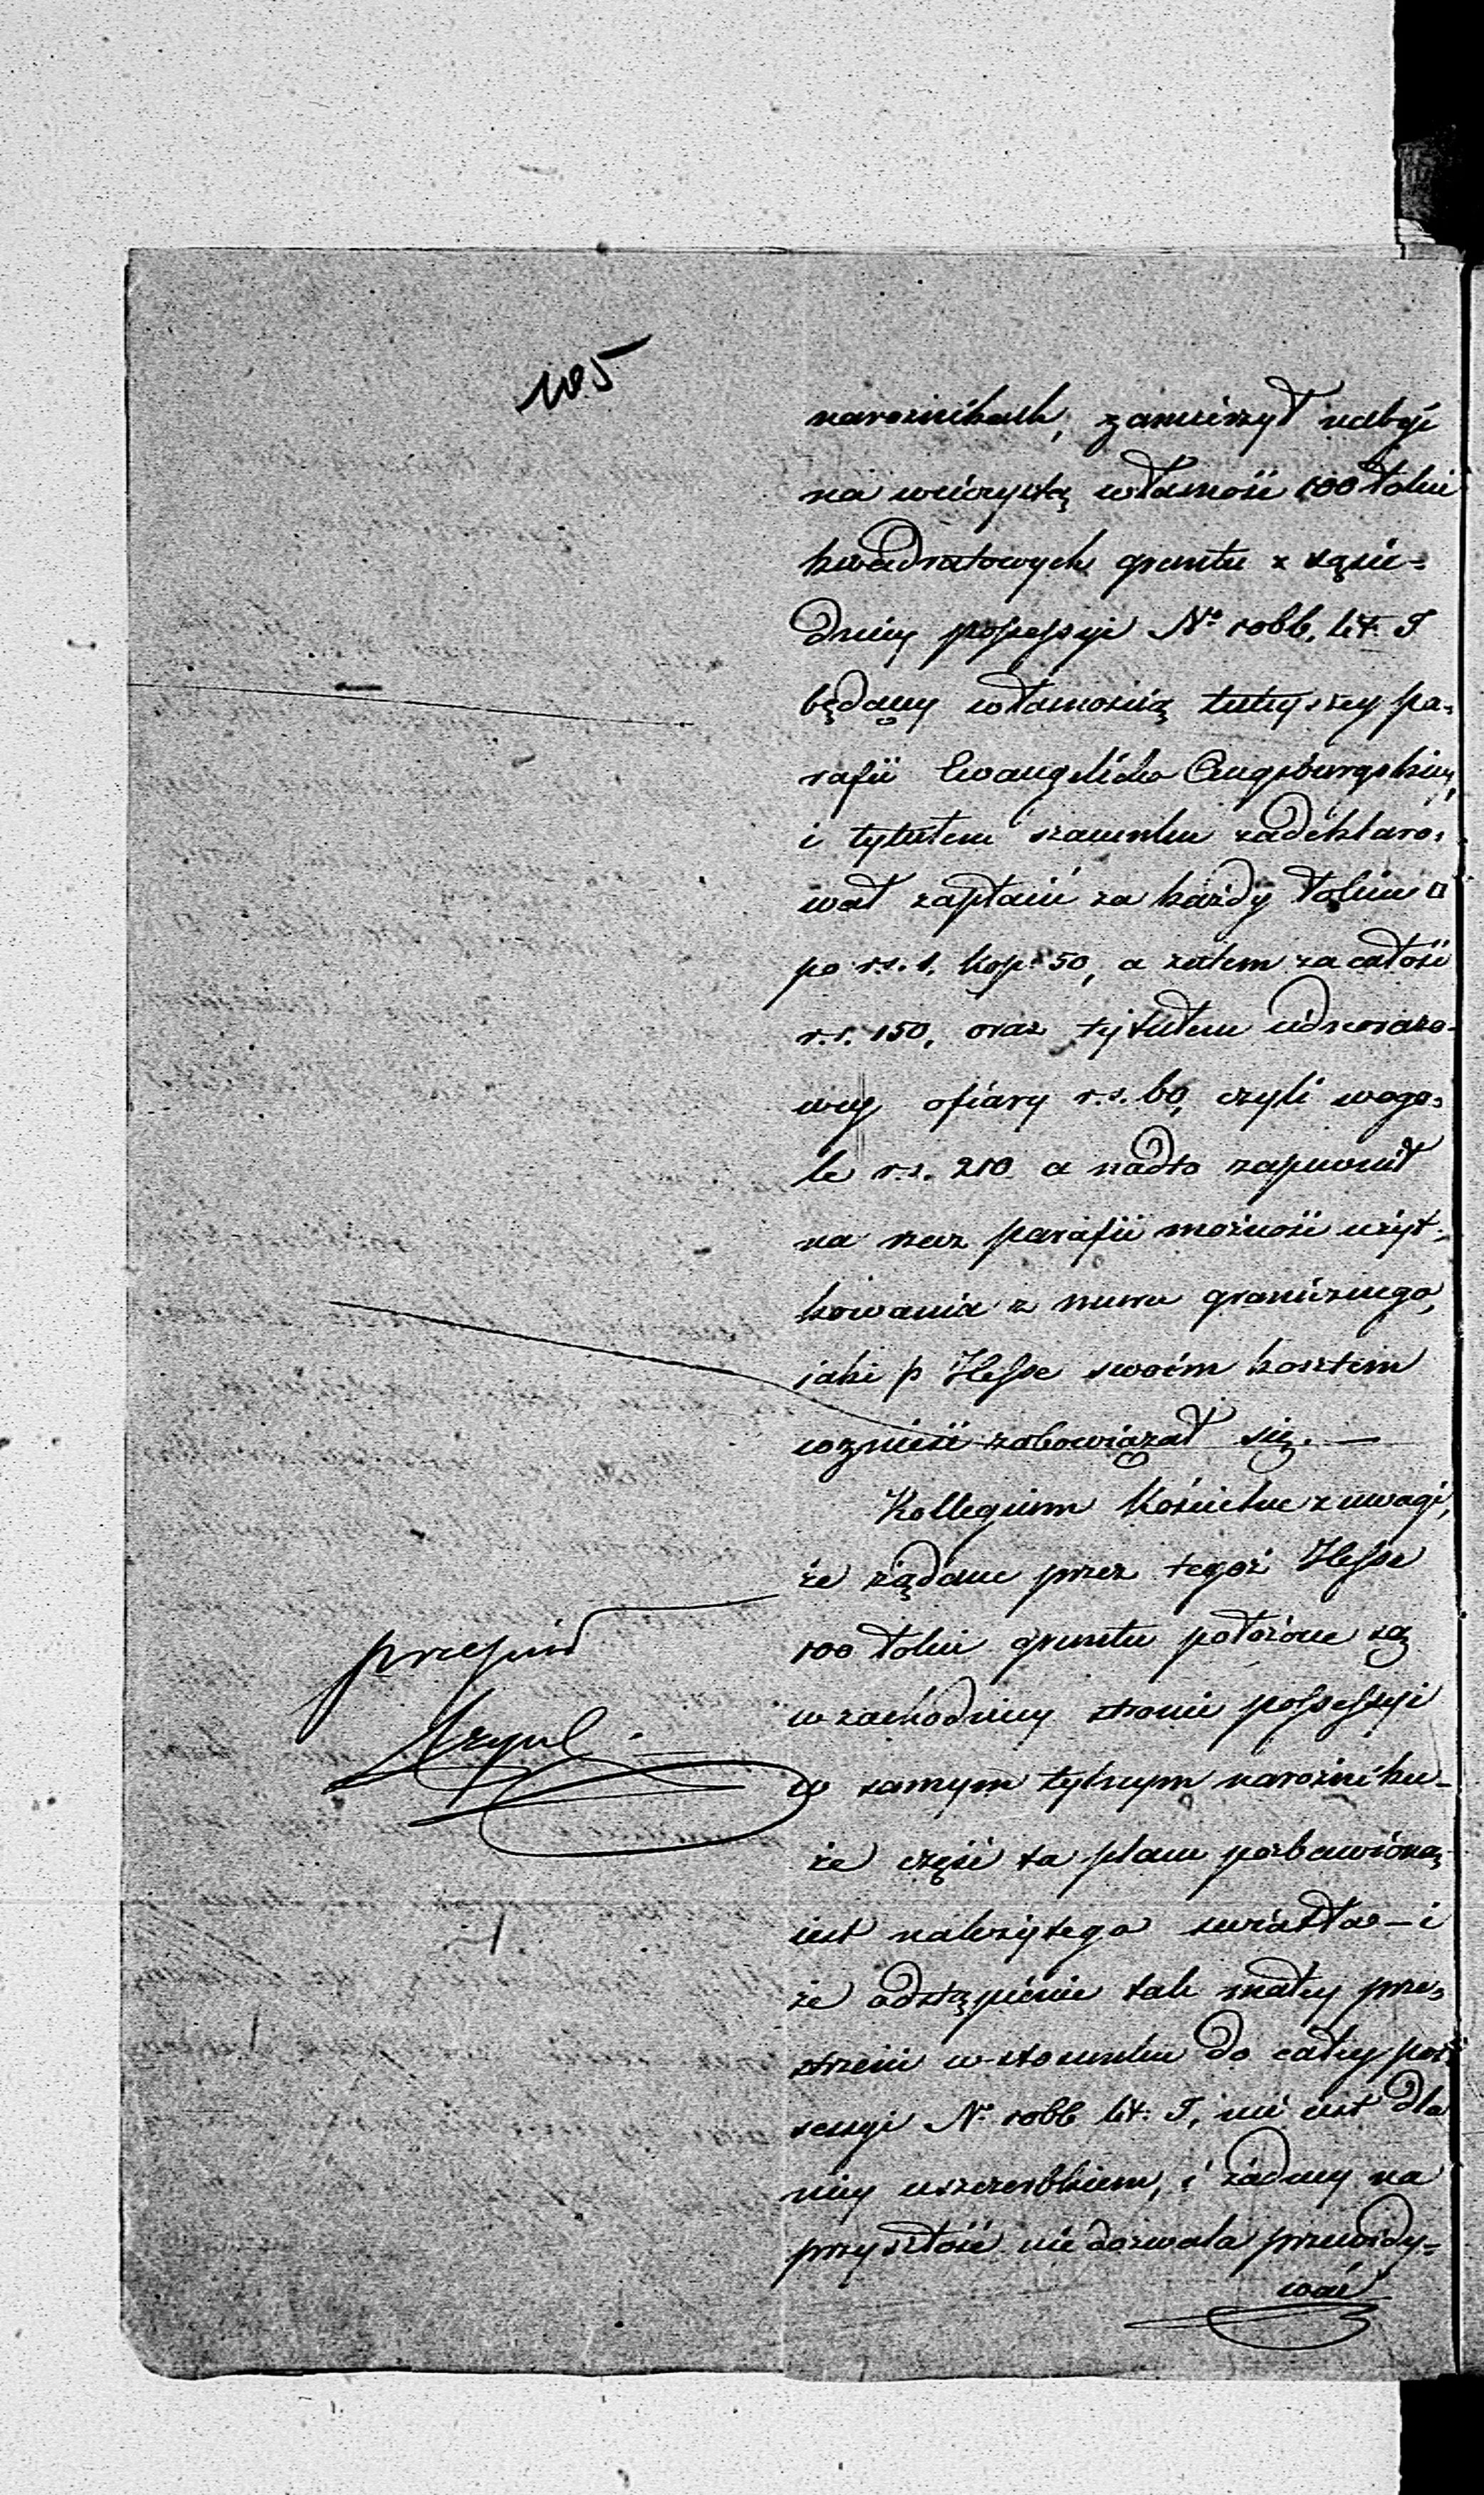 105
narożnikach, zamierzył nabyć
na wieczystą własność 100 łokci
kwadratowych gruntu z sąsie=
dniey possessyi No 1066, lit. J
będącey własnością tuteyszey pa=
rafii Ewangelicko Augsburgskiey,
i tytułem szacunku zadeklaro=
wał zapłacić za każdy łokieć □
po r.s. 1. kop. 50, a zatem za całość
r.s. 150, oraz tytułem iednorazo=
wey ofiary r.s. 60, czyli wogo=
le r.s. 210 a nadto zapewnił
na rzecz parafii możność użyt=
kowania z muru granicznego,
iaki p Hesse swoim kosztem
wznieść zobowiązał się. —
Kollegium Kościelne z uwagi,
że żądane przez tegoż Hesse
100 łokci gruntu położone są
w zachodniey stronie possessyi
w samym tylnym narożniku—
że część ta placu pozbawioną
iest należytego światła — i
że odstąpienie tak małey prze=
strzeni w stosunku do całey pos=
sessyi No 1066 lit. J, nie iest dla
niey uszczerbkiem, i żadney na
przyszłość nie dozwala przewidy=
wać